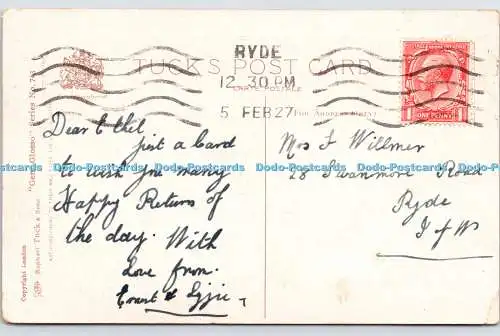 RYDE
TUCK'S POST CARD
12 30 PM
CARTE POSTALE
5 FEB 27
FOR ADDRESS ONLY
ONE PENNY
Dear Ethel
just a Card
to wish you many
Happy Return of
the day. With
Love from.
Ernest &
Mrs J Willmer
28 Swanmore Road
Ryde
I of W
Dodo-Postcards Dodo-Postcards Dodo-Postcards Dodo-Postcards Dodo-Postcards
"Gem Glosso" Series No.
Raphael Tuck & Sons
Copyright London